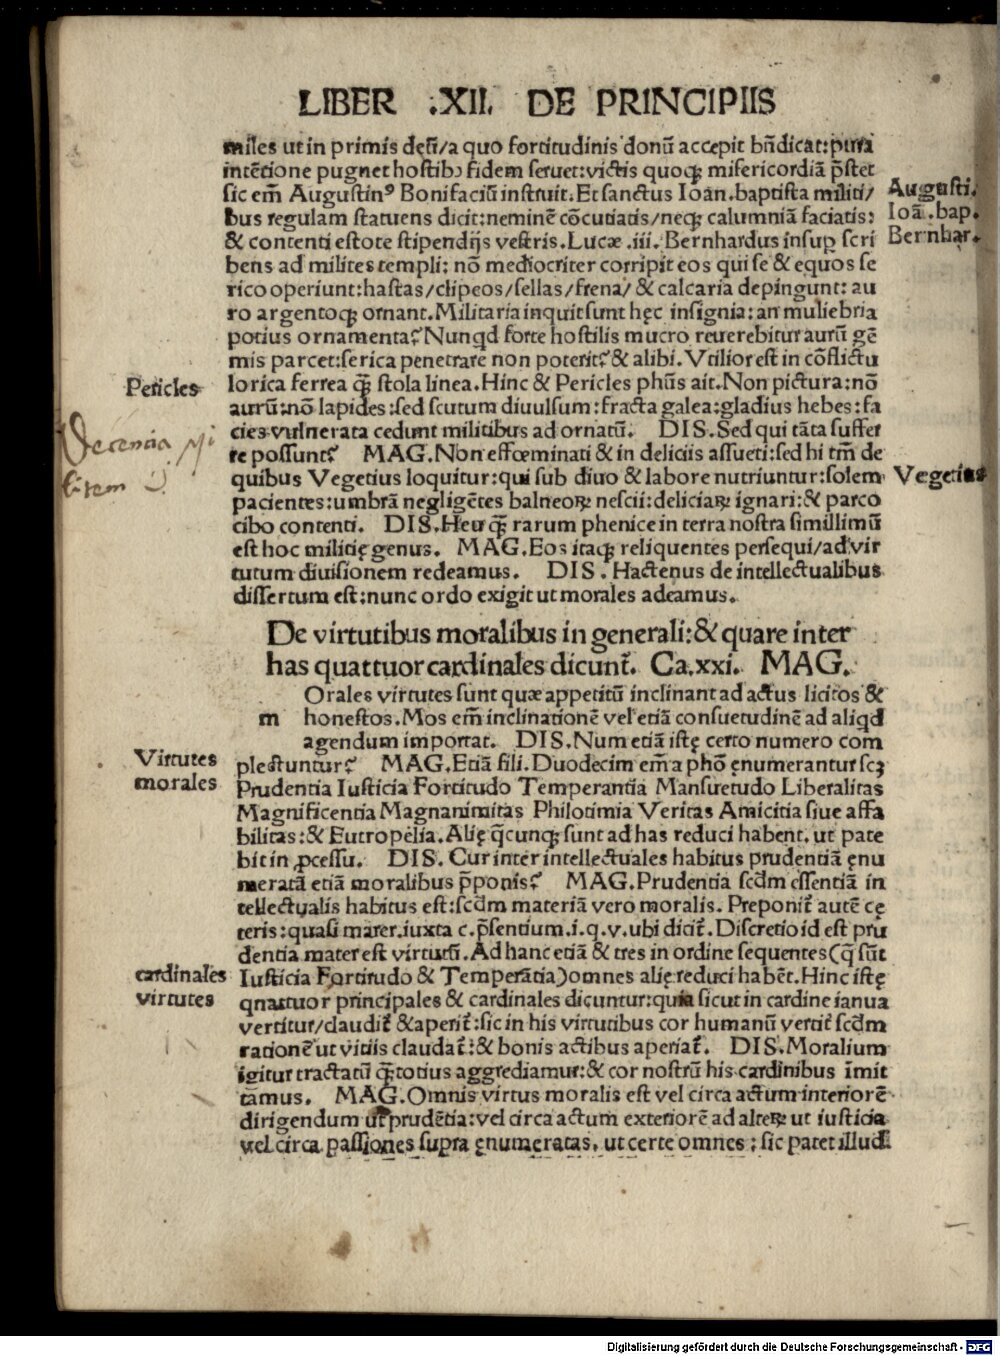 LIBER .XII. DE PRINCIPIIS
miles ut in primis dęū/a quo fortitudinis donū accepit bn̄dicat:pura
intētione pugnet hostibꝫ fidem seruet:victis quoqꝫ misericordiā p̄stet
sic em̄ Augustinꝰ Bonifaciū instruit. Et sanctus Ioān.baptista militi/
Augusti.
bus regulam statuens dicit:neminē cōcutiatis/neqꝫ calumniā faciatis:
Ioā.bap.
& contenti estote stipendijs vestris.Lucæ.iii.Bernhardus insup scri
Bernhar.
bens ad milites templi: nō mediocriter corripit eos qui se & equos se
rico operiunt:hastas/clipeos/sellas/frena/ & calcaria depingunt: au
ro argentoqꝫ ornant.Militaria inquit sunt hęc insignia: an muliebria
potius ornamenta? Nunqd forte hostilis mucro reuerebitur aurū gē
mis parcet:serica penetrare non poterit? & alibi. Vtilior est in cōflictu
lorica ferrea q̄ꝫ stola linea.Hinc & Pericles phūs ait.Non pictura:nō
Pericles
aurū:nō lapides:sed scutum diuulsum:fracta galea:gladius hebes:fa
cies vulnerata cedunt militibus ad ornatū. DIS.Sed qui tāta suffer
Decencia mi
re possunt? MAG.Non effœminati & in deliciis assueti:sed hi tm̄ de
litem
quibus Vegetius loquitur:qui sub diuo & labore nutriuntur:solem
Vegetius
pacientes:umbrā negligētes balneoꝝ nescii:deliciaꝝ ignari:& parco
cibo contenti. DIS.Heu q̄ꝫ rarum phenice in terra nostra simillimū
est hoc militię genus. MAG.Eos itaqꝫ reliquentes persequi/ad vir
tutum diuisionem redeamus. DIS. Hactenus de intellectualibus
dissertum est:nunc ordo exigit ut morales adeamus.
De virtutibus moralibus in generali:& quare inter
has quattuor cardinales dicunt̄. Ca.xxi. MAG.
Orales virtutes sunt quæ appetitū inclinant ad actus licitos &
m honestos.Mos em̄ inclinationē vel etiā consuetudinē ad aliqd
agendum importat. DIS.Num etiā istę certo numero com
Virtutes
plectuntur? MAG.Etiā fili.Duodecim em̄ a phō ęnumerantur scꝫ
morales
Prudentia Iusticia Fortitudo Temperantia Mansuetudo Liberalitas
Magnificentia Magnanimitas Philotimia Veritas Amicitia siue affa
bilitas:& Eutropelia.Alię q̄cunqꝫ sunt ad has reduci habent. ut pate
bit in ꝓcessu. DIS. Cur inter intellectuales habitus prudentiā ęnu
meratā etiā moralibus p̄ponis? MAG.Prudentia scd̄m essentiā in
tellectualis habitus est:scd̄m materiā vero moralis. Preponit̄ autē cę
teris:quasi mater.iuxta c.p̄sentium.i.q.v.ubi dicit̄.Discretio id est pru
dentia mater est virtutū.Ad hanc etiā & tres in ordine sequentes(q̄ sūt
Iusticia Fortitudo & Temperātia)omnes alię reduci habēt.Hinc istę
cardinales
quattuor principales & cardinales dicuntur:quia sicut in cardine ianua
virtutes
vertitur/claudit̄ & aperit̄:sic in his virtutibus cor humanū vertit̄ scd̄m
rationē ut vitiis claudat̄:& bonis actibus aperiat̄. DIS.Moralium
igitur tractatū q̄ꝫtotius aggrediamur:& cor nostrū his cardinibus īmit
tamus. MAG.Omnis virtus moralis est vel circa actum interiorē
dirigendum ut prudētia:vel circa actum exteriorē ad alteꝝ ut iusticia
vel circa passiones supra ęnumeratas. ut certe omnes: sic patet illud.
Digitalisierung gefördert durch die Deutsche Forschungsgemeinschaft - DFG